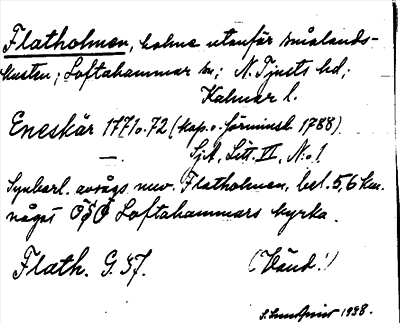 Flatholmen, holme utanför smålands-
kusten; Loftahammar sn; N. Tjusts hd;
Kalmar l.
Eneskär 1771 o. 72 (kop. o. förminsk. 1788).
Sjk, Litt. II, N:o 1.
Synbarl. avsågs nuv. Flatholmen, bel. 5,6 km.
något ÖSÖ Loftahammars kyrka.
Flath. G. 37.
(Vänd!)
1938.